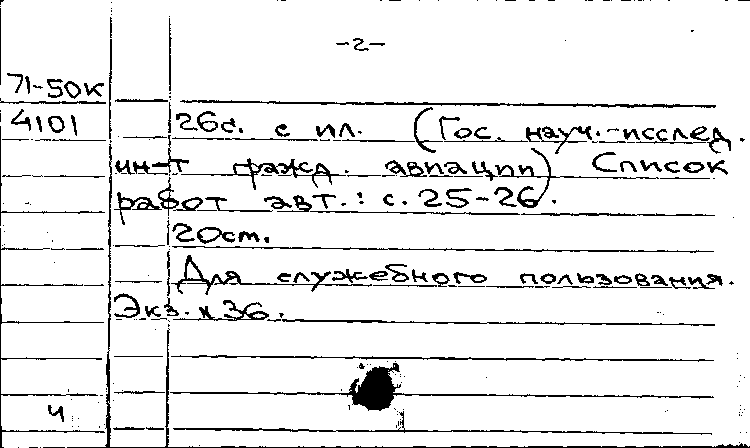 -2-
71-50к
4101 26с. с ил. (Гос. науч.-исслед.
ин-т гражд. авиации) Список
работ авт.: с. 25-26.
20см.
Для служебного пользования.
Экз. н 36.
ч